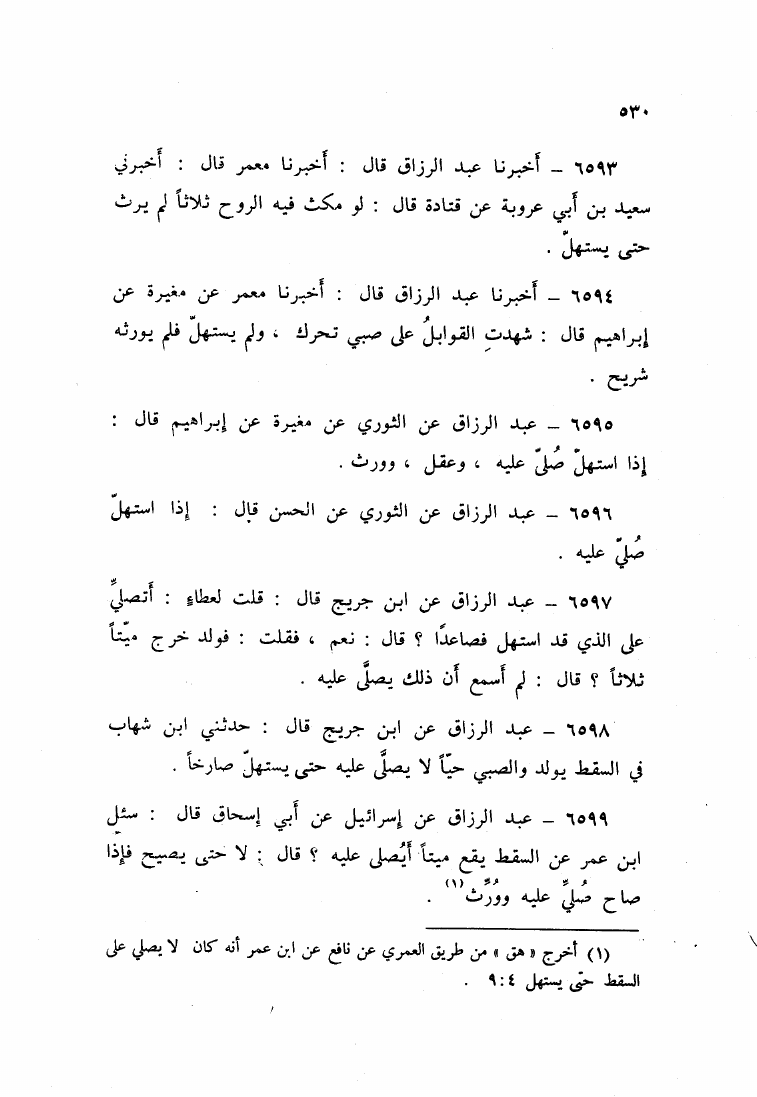 ٥٣٠
٦٥٩٣ – أخبرنا عبد الرزاق قال : أخبرنا معمر قال : أخبرني
سعيد بن أبي عروبة عن قتادة قال : لو مكث فيه الروح ثلاثاً لم يرث
حتى يستهلّ .
٦٥٩٤ – أخبرنا عبد الرزاق قال : أخبرنا معمر عن مغيرة عن
إبراهيم قال : شهدتِ القوابلُ على صبي تحرك ، ولم يستهلّ فلم يورثه
شريح .
٦٥٩٥ – عبد الرزاق عن الثوري عن مغيرة عن إبراهيم قال :
إذا استهلّ صُلّي عليه ، وعقل ، وورث .
٦٥٩٦ – عبد الرزاق عن الثوري عن الحسن قال : إذا استهلّ
صُلّي عليه .
٦٥٩٧ – عبد الرزاق عن ابن جريج قال : قلت لعطاءٍ : أتصلِّي
على الذي قد استهل فصاعدًا ؟ قال : نعم ، فقلت : فولد خرج ميّتاً
ثلاثاً ؟ قال : لم أسمع أن ذلك يصلَّى عليه .
٦٥٩٨ – عبد الرزاق عن ابن جريج قال : حدثني ابن شهاب
في السقط يولد والصبي حيّاً لا يصلَّى عليه حتى يستهلّ صارخاً .
٦٥٩٩ – عبد الرزاق عن إسرائيل عن أبي إسحاق قال : سئل
ابن عمر عن السقط يقع ميتاً أيُصلى عليه ؟ قال : لا حتى يصيح فإذا
صاح صُلِّي عليه ووُرِّث(١) .
(١) أخرج « هق » من طريق العمري عن نافع عن ابن عمر أنه كان لا يصلي على
السقط حتّى يستهل ٤ : ٩ .